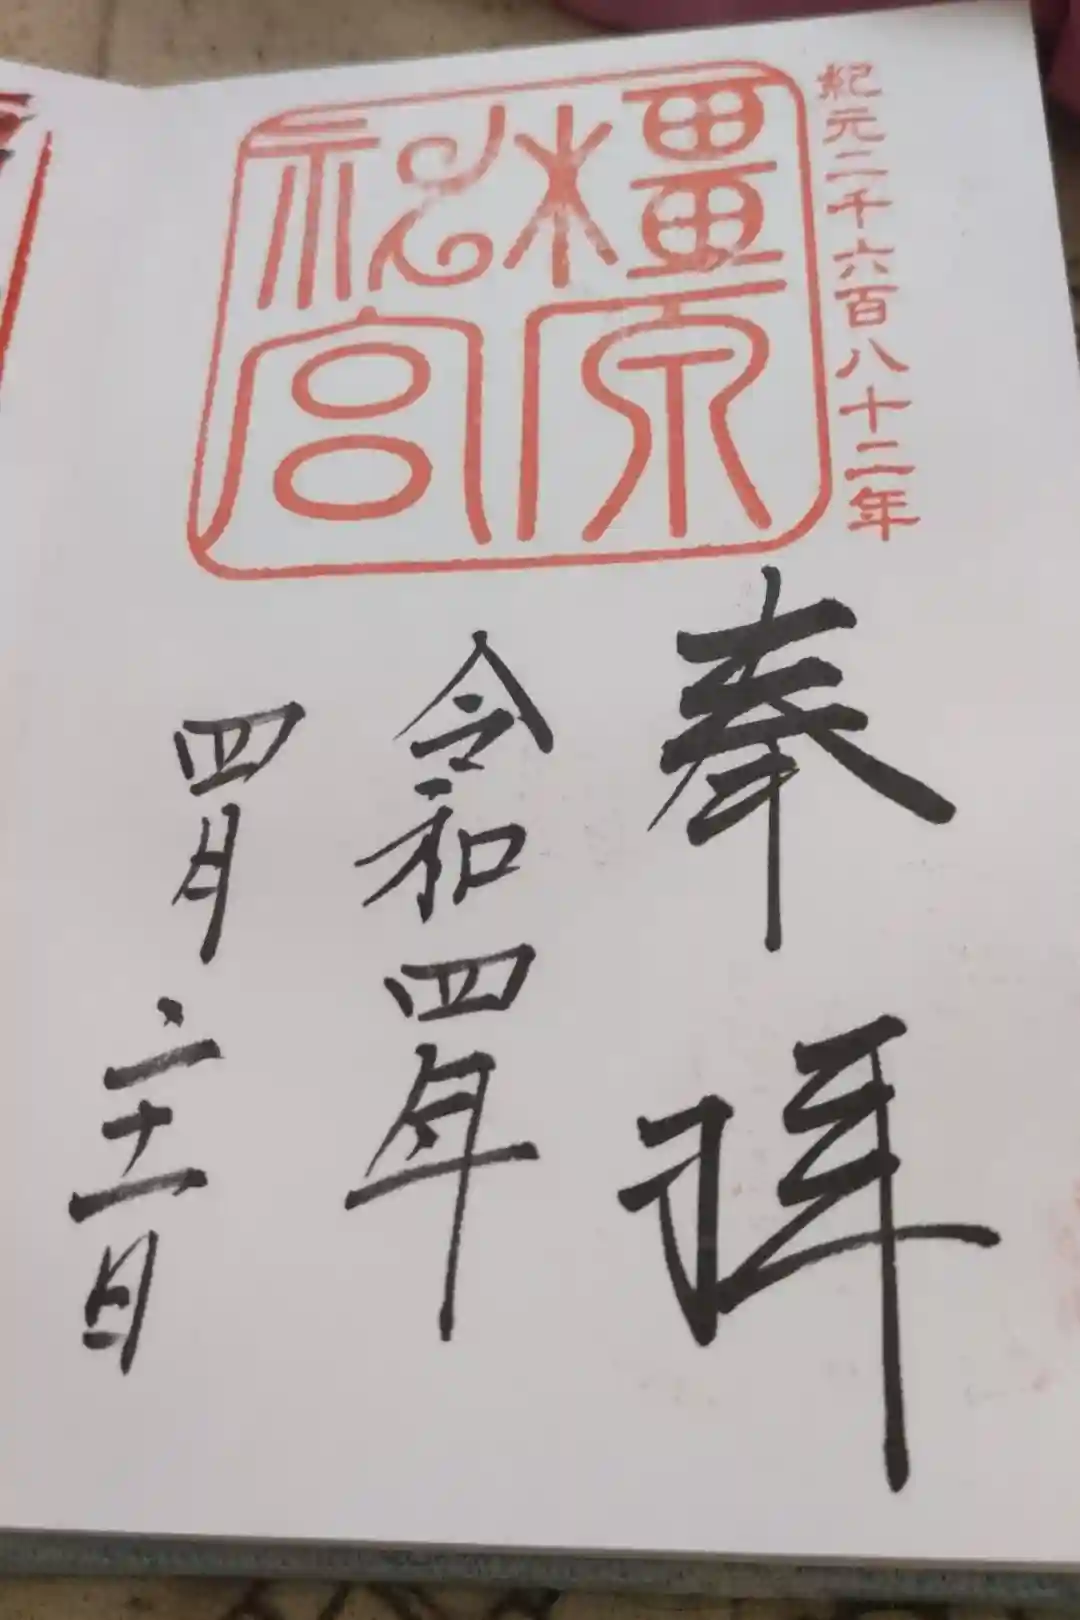 紀元二千六百八十二年
橿原
神宮
奉拝
令和四年
四月二十二日